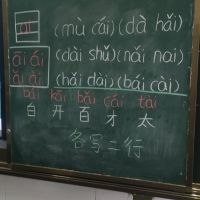 ɑi (mù cái)(dà hǎi)
āi ái (dài shǔ)(nǎi nai)
ǎi ài (hǎi dài)(bái cài)
bái kāi bǎi cái tài
白 开 百 才 太
各写二行